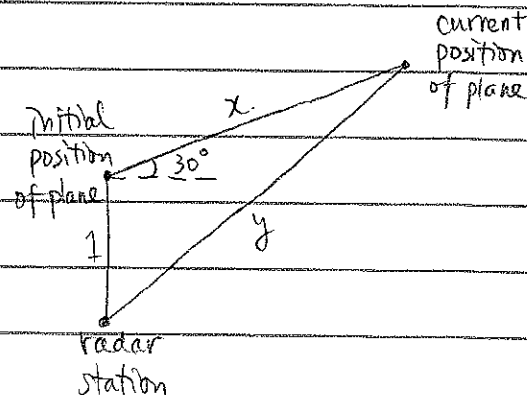 current
position
of plane
x.
initial
position
of plane
30°
1
y
radar
station